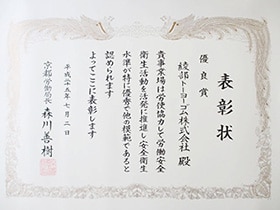 表彰状
優良賞
綾部トーヨーゴム株式会社 殿
貴事業場は労使協力して労働安全
衛生活動を活発に推進し安全衛生
水準が特に優秀で他の模範であると
認められます
よってここに表彰します
平成二十五年七月二日
京都労働局長 森川善樹